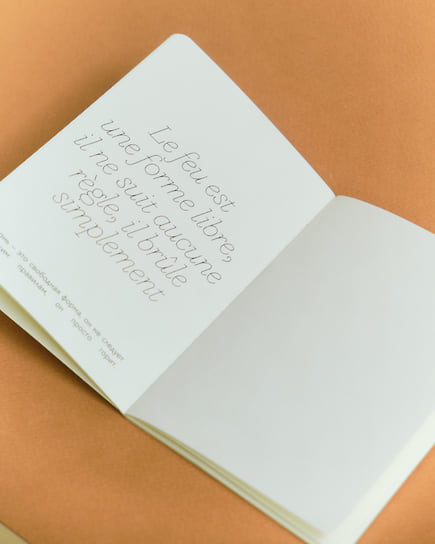 Le feu est
une forme libre,
il ne suit aucune
règle, il brûle
simplement
– это свободная форма, он не следует
правилам, он просто горит.